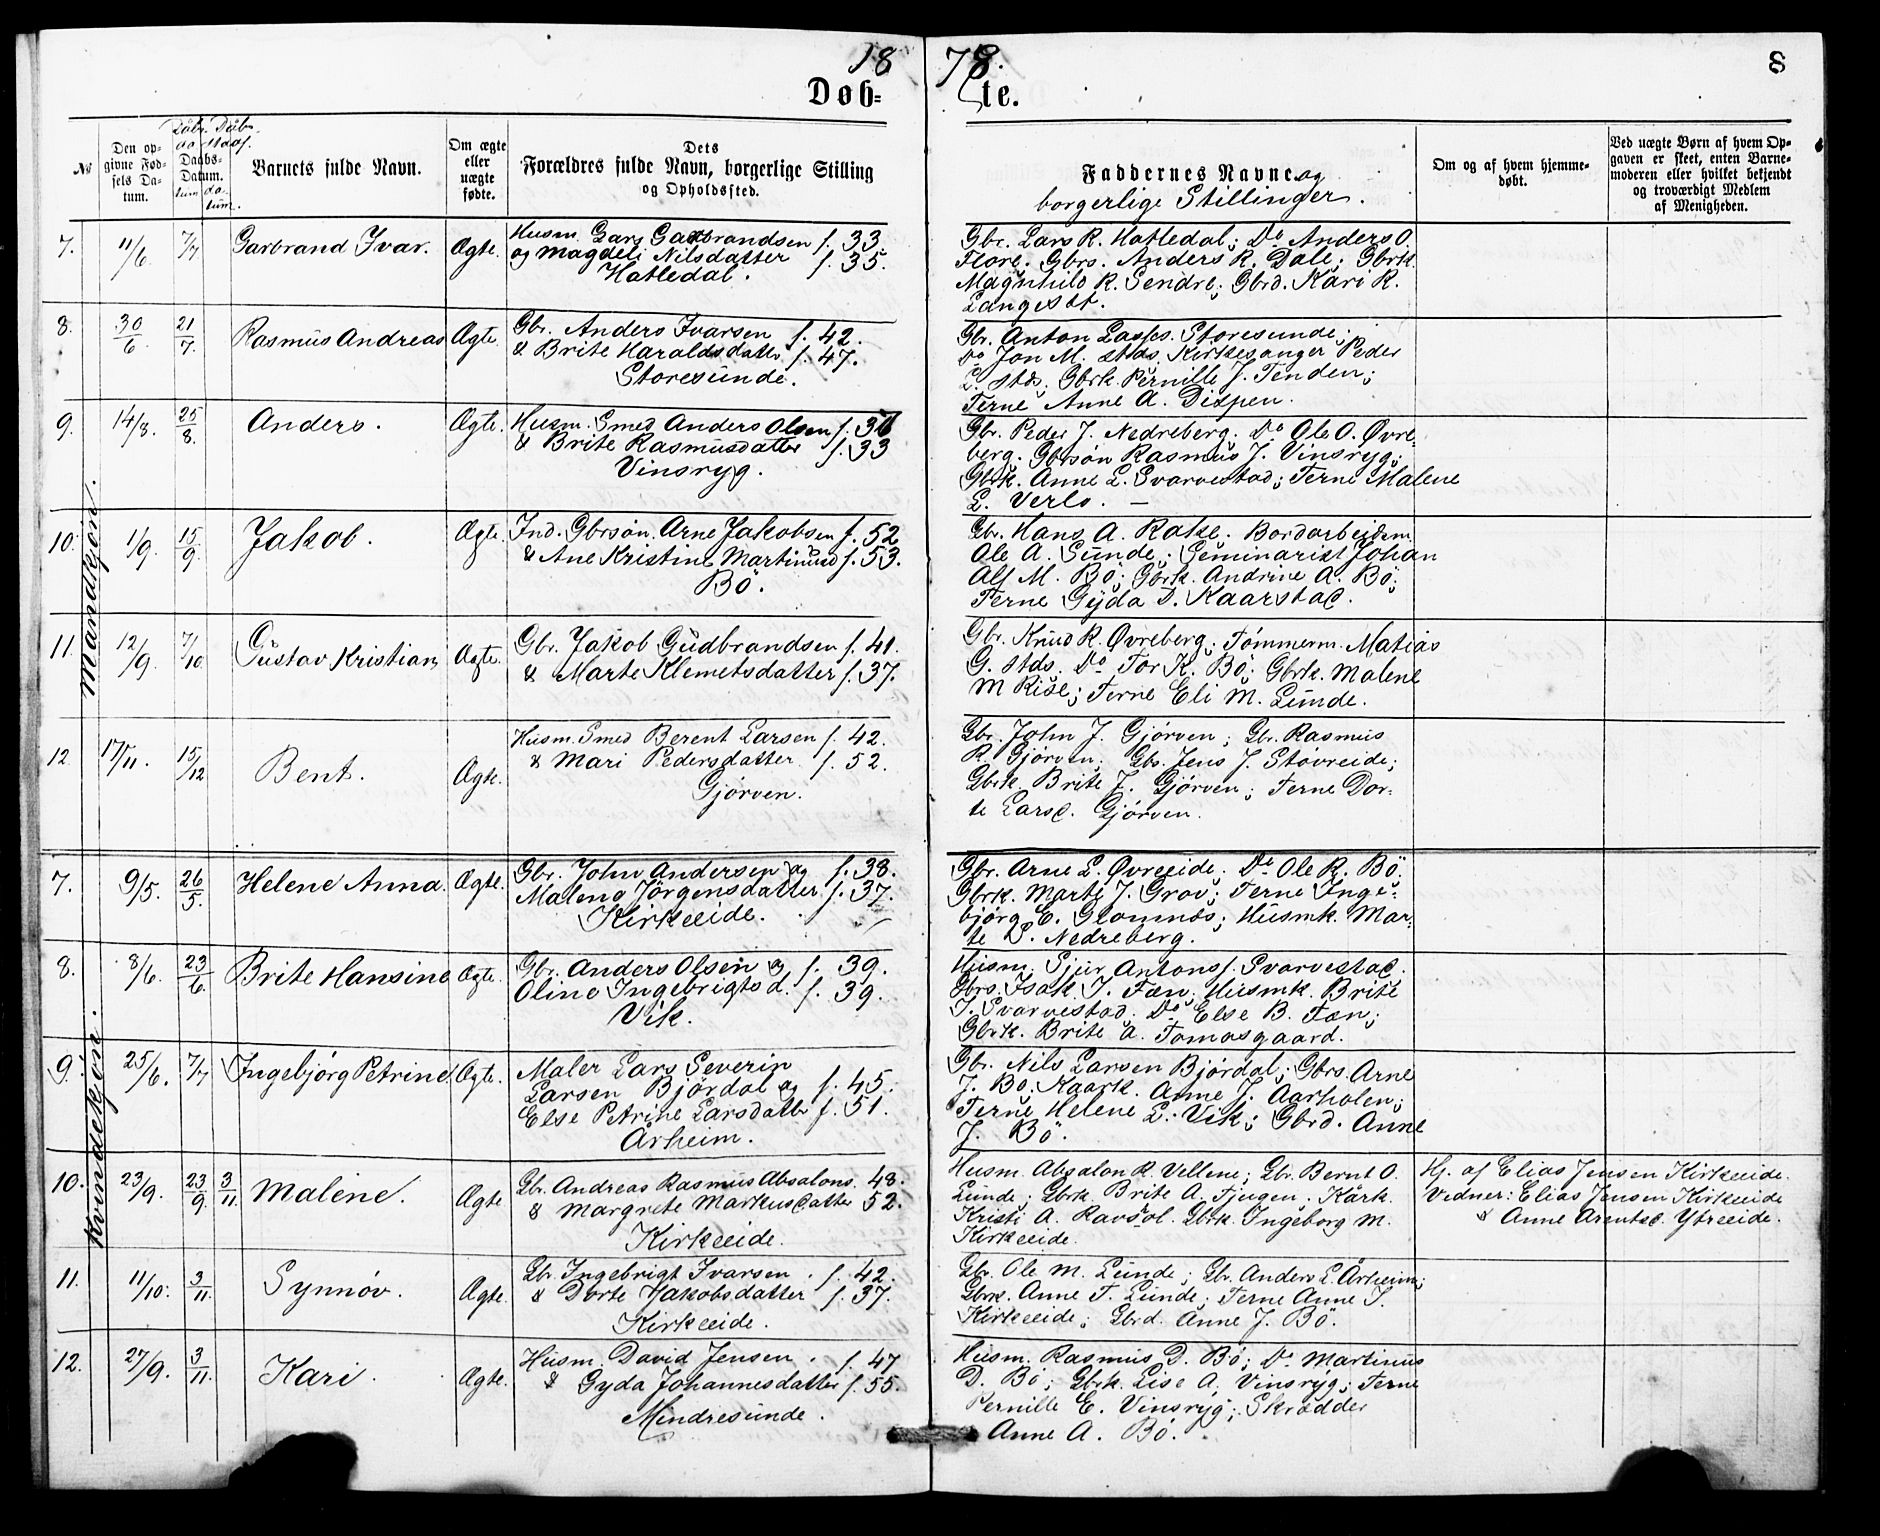 18 78. 8
Døb= te.
№
Den op-
givne Fød-
sels Da-
tum.
Daabs-
Datum.
Barnets fulde Navn.
Om ægte
eller
uægte
fødte.
Dets
Forældres fulde Navn, borgerlige Stilling
og Opholdssted.
Faddernes Navne og
borgerlige Stillinger.
Om og af hvem hjemme-
døbt.
Ved uægte Børn af hvem Op-
gaven er skeet, enten Barne-
moderen eller hvilket bekjendt
og troværdigt Medlem
af Menigheden.
Mandkjön.
7. 11/6 7/7 Garbrand Ivar. Ægte.
Husm. Lars Garbrandsen f. 33.
og Magdeli Nilsdatter f. 35.
Hatledal.
Gbr. Lars R. Hatledal; Do Anders O.
Flore. Gbrs. Anders R. Dale; Gbrk.
Magnhild R. Sendre; Gbrd. Kari R.
Langeset.
8. 30/6 21/7. Rasmus Andreas Ægte.
Gbr. Anders Ivarsen f. 42.
& Brite Haraldsdatter f. 47.
Storesunde.
Gbr. Anton Lasses. Storesunde;
Do Jon M. stds. Kirkesanger Peder
L. stds. Gbrk. Pernille J. Tenden;
Terne Anne A. Dispen.
9. 14/8. 25/8. Anders. Ægte.
Husm. Smed Anders Olsen f. 36
& Brite Rasmusdatter f. 33
Vinsryg.
Gbr. Peder J. Nedreberg. Do Ole O. Øvre
berg. Gbrsön Rasmus J. Vinsryg;
Gbrk. Anne L. Svarvestad; Terne Malene
L. Verlo. —
10. 1/9. 15/9. Jakob. Ægte.
Ind. Gbrsön. Arne Jakobsen f. 52
& Ane Kristine Martinusd f. 53.
Bö.
Gbr. Hans A. Rake. Bordarbeiderm.
Ole A. Sunde; Seminarist Johan
Alf M. Bö; Gbrk. Andrine A. Bö;
Terne Gyda D. Kaarstad.
11. 12/9. 7/10 Gustav Kristian, Ægte.
Gbr. Jakob Gudbrandsen f. 41.
& Marte Klemetsdatter f. 37.
Gbr. Knud R. Øvreberg; Tömmerm. Matias
G. stds. Do Tor K. Bö; Gbrk. Malene
M Rise; Terne Eli M. Lunde.
12. 17/11. 15/12 Bent. Ægte.
Husm. Smed Berent Larsen f. 42.
& Mari Pedersdatter f. 52.
Gjörven.
Gbr. John J. Gjörven; Gbr. Rasmus
R. Gjörven; Gbs. Jens J. Stövreide;
Gbrk. Brite J. Gjörven; Terne Dor-
te Larsd. Gjörven.
Kvindekjön.
7. 9/5. 26/5. Helene Anna. Ægte.
Gbr. John Andersen og f. 38.
Malene Jörgensdatter f. 37.
Kirkeeide.
Gbr. Arne L. Øvreeide; Do Ole R. Bö.
Gbrk. Marte J. Grov; Terne Inge-
björg E. Glomnes; Husmk. Mar-
te D. Nedreberg.
8. 8/6. 23/6. Brite Hansine Ægte.
Gbr. Anders Olsen og f. 39.
Oline Ingebrigtsd. f. 39.
Vik.
Husm. Sjur Antonsf. Svarvestad.
Gbrs. Isak J. Fæn; Husmk. Brite
J. Svarvestad. Do Else B. Fæn;
Gbrk. Brite A. Tomasgaard.
9. 25/6. 7/7 Ingebjörg Petrine Ægte.
Maler Lars Severin
Larsen Björdal og f. 45.
Else Petrine Larsdatter f. 51.
Årheim.
Gbr. Nils Larsen Björdal; Gbrs. Arne
J. Bö. Kaark. Anne J. Aarholen;
Terne Helene L. Vik; Gbrd. Anne
J. Bö.
10. 23/9. 23/9. 3/11. Malene. Ægte
Gbr. Andreas Rasmus Absalons. 48.
& Margrete Markusdatter 52.
Kirkeeide.
Husm. Absalon R. Vellene; Gbr. Bernt O.
Lunde; Gbrk. Brite A. Tjugen. Kårk.
Kristi A. Ravsol. Gbrk. Ingeborg M.
Kirkeeide.
Hj. af Elias Jensen Kirkeeide.
Vidner: Elias Jensen Kirkeeide
& Anne Arentsd. Ytreeide.
11. 11/10. 3/11. Synnöv. Ægte.
Gbr. Ingebrigt Ivarsen f. 42.
& Dorte Jakobsdatter f. 37.
Kirkeeide.
Gbr. Ole M. Lunde; Gbr. Anders L. Årheim;
Gbrk. Anne T. Lunde; Terne Anne I.
Kirkeeide; Gbrd. Anne J. Bö.
12. 27/9. 3/11. Kari. Ægte.
Husm. David Jensen f. 47
& Gyda Johannesdatter f. 55.
Mindresunde.
Husm. Rasmus D. Bö; Do Martinus
D. Bö; Gbrk. Lise A. Vinsryg; Terne
Pernille E. Vinsryg; Skrödder
Anne A. Bö.